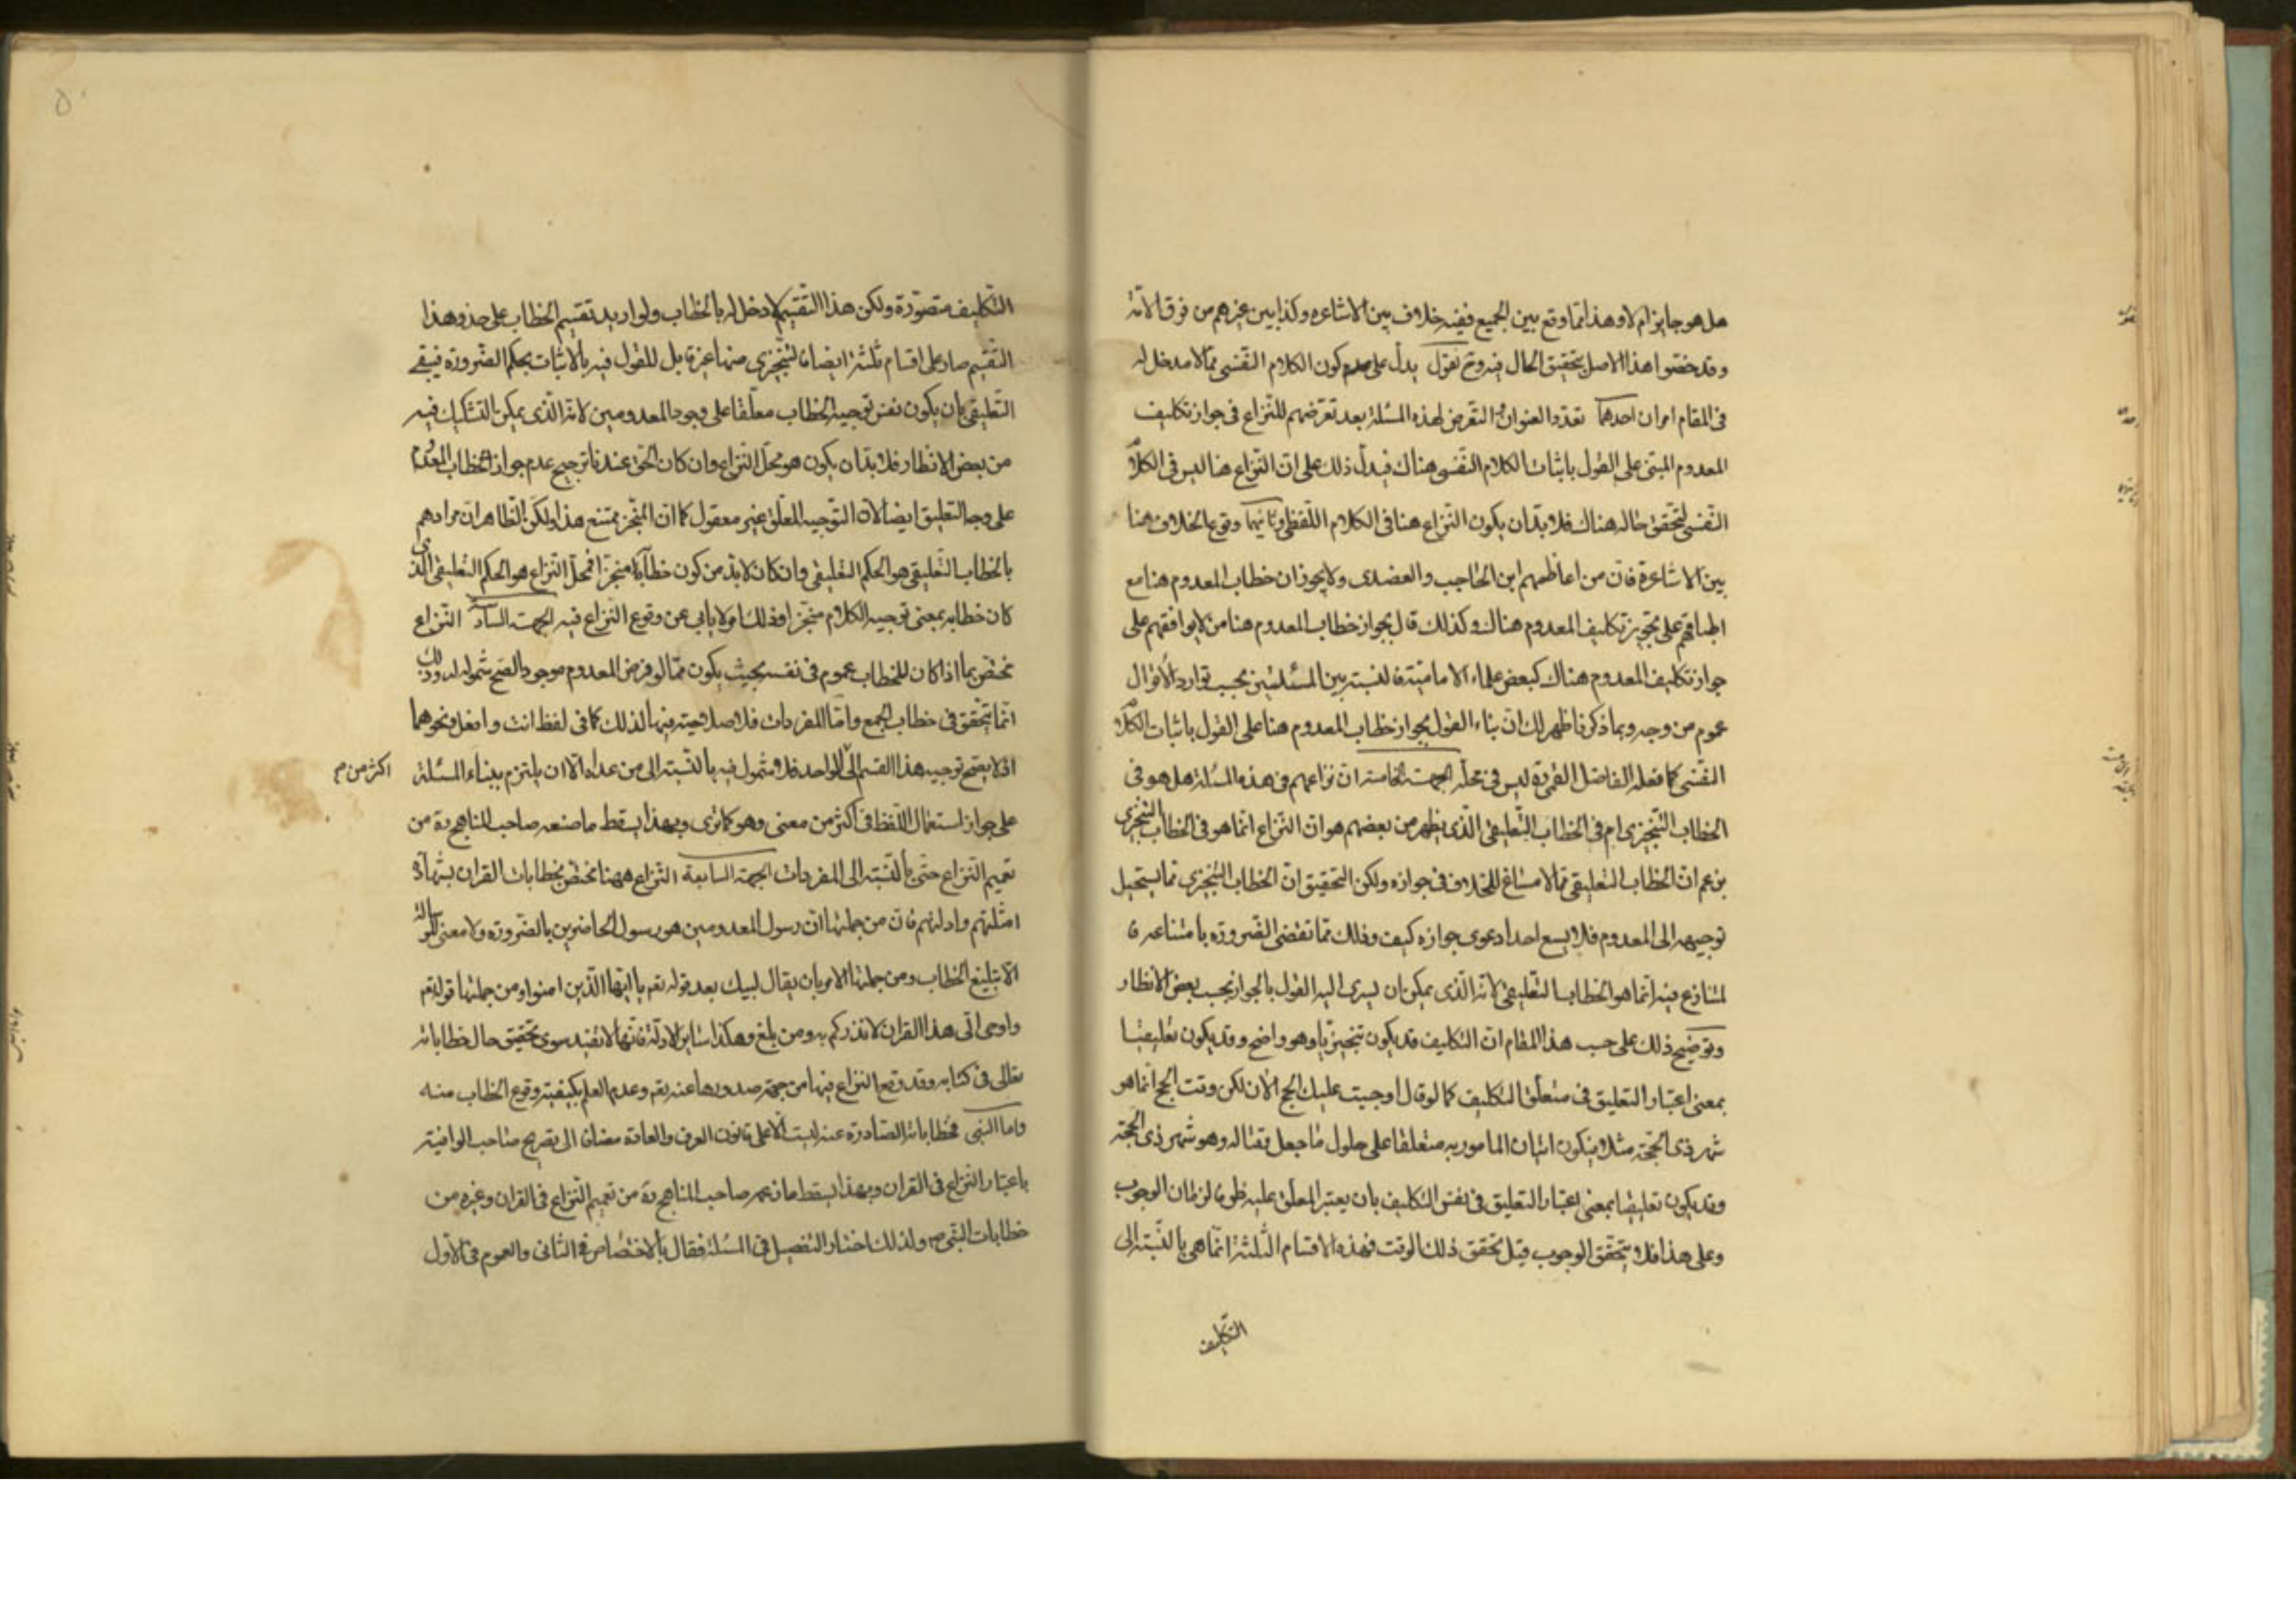 هل هو جايز ام لا وهذا انما وقع بين الجميع ففيه خلاف بين الاشاعره وكذا بين غيرهم من فرق الامّة
وقد خصّوا هذا الاصل بتحقيق الحال فيه وح نقول يدلّ على عدم كون الكلام النّفسى ممّا لا مدخل له
فى المقام امران احدهما تعدّد العنوان و التعرض لهذه المسئلة بعد تعرّضهم للنّزاع فى جواز تكليف
المعدوم المبتنى على القول باثبات الكلام النّفسى هناك فيدلّ ذلك على انّ النّزاع هنا ليس فى الكلام
النّفسى لتحقق حاله هناك فلا بدّ ان يكون النّزاع هنا فى الكلام اللّفظى وثانيهما وقوع الخلاف هنا
بين الاشاعرة فان من اعاظمهم ابن الحاجب والعضدى ولا يجوزان خطاب المعدوم هنا مع
اطباقهم على تجويز تكليف المعدوم هناك وكذلك قال بجواز خطاب المعدوم هنا من لا يوافقهم على
جواز تكليف المعدوم هناك كبعض علماء الاماميّة فالنسبة بين المسئلتين بحسب توارد الاقوال
عموم من وجه وبما ذكرنا ظهر لك انّ بناء القول بجواز خطاب المعدوم هنا على القول باثبات الكلام
النّفسى كما فعله الفاضل القمى ره ليس فى محلّه الجهت الخامسة ان نزاعهم فى هذه المسئلة هل هو فى
الخطاب التّنجيزى ام فى الخطاب التّعليقى الّذى يظهر من بعضهم هو ان النّزاع انّما هو فى الخطاب التّنجيزى
بزعم ان الخطاب التعليقى ممّا لا مساغ للخلاف فى جوازه ولكن التّحقيق انّ الخطاب التّنجيزى مما يستحيل
توجيهه الى المعدوم فلا يسع احدا دعوى جوازه كيف وذلك ممّا تقضى الضّرورة بامتناعه فا
لمتنازع فيه انما هو الخطاب التعليقى لانّه الّذى يمكن ان يسرى اليه القول بالجواز بحسب بعض الانظار
وتوضيح ذلك على حسب هذا المقام انّ التكليف قد يكون تنجيزيّا وهو واضح وقد يكون تعليقيّا
بمعنى اعتبار التعليق فى متعلّق التكليف كما لو قال اوجبت عليك الحج الآن لكن وقت الحج انّما هو
شهر ذى الحجّة مثلا فيكون اتيان المامور به متعلقا على حلول ما جعل وقتا له وهو شهر ذى الحجّة
وقد يكون تعليقيّا بمعنى اعتبار التعليق فى نفس التكليف بان يعتبر المعلّق عليه ظرفا لزمان الوجوب
وعلى هذا فلا يتحقّق الوجوب قبل تحقق ذلك الوقت فهذه الاقسام الثّلثة انّما هى بالنّسبة الى
التّكليف
التّكليف متصوّرة ولكن هذا التّقسيم لا دخل له بالخطاب ولو اريد تقسيم الخطاب على حذو هذا
التّقسيم صار على اقسام ثلثة ايضا فالتّنجيزى منها غير قابل للقول فيه بالاثبات بحكم الضّرورة فيبقى
التّعليقى بان يكون نفس توجيه الخطاب معلّقا على وجود المعدومين لانّه الّذى يمكن التّشكيك فيه
من بعض الانظار فلا بدّ ان يكون هو محلّ النّزاع وان كان الحق عندنا ترجيح عدم جواز الخطاب المعدوم
على وجه التعليق ايضا لانّ التوجيه المعلّق غير معقول كما انّ المنجّز ممتنع هذا ولكن الظّاهر ان مرادهم
بالخطاب التّعليقى هو الحكم التّعليقى وان كان لا بدّ من كون خطابه منجزا فمحلّ النّزاع هو الحكم التعليقى الّذى
كان خطابه بمعنى توجيه الكلام منجّزا وذلك لا يابى عن وقوع النّزاع فيه الجهت السادسة النّزاع
مختصّ بما اذا كان للخطاب عموم فى نفسه بحيث يكون ممّا لو فرض المعدوم موجودا لصحّ شموله له وذلك
انّما يتحقّق فى خطاب الجمع وامّا المفردات فلا صلاحيّة فيها لذلك كما فى لفظ انت وافعل ونحوهما
اذ لا يصح توجيه هذا القسم الى الواحد فلا شمول فيه بالنّسبة الى من عداه الّا ان يلتزم ببناء المسئلة
اكثر من م
على جواز استعمال اللّفظ فى اكثر من معنى وهو كما ترى وبهذا يسقط ما صنعه صاحب المناهج ره من
تعميم النّزاع حتّى بالنّسبة الى المفردات الجهة السابعة النّزاع ههنا مختصّ بخطابات القران بشهادة
امثلتهم وادلتهم فان من جملتها انّ رسول المعدومين هو رسول الحاضرين بالضّرورة ولا معنى للرسالة
الّا تبليغ الخطاب ومن جملتها الامر بان يقال لبيك بعد قوله تعم يا ايّها الّذين امنوا ومن جملتها قوله تعم
واوحى الىّ هذا القران لانذركم به ومن بلغ وهكذا ساير الادلّة فانّها لا تفيد سوى تحقيق حال خطاباته
تعالى فى كتابه وقد وقع النزاع فيها من جهة صدورها عنه تعم وعدم العلم بكيفيّة وقوع الخطاب منه
واما النبى فخطاباته الصّادرة عنه ليست الّا على قانون العرف والعادة مضافا الى تصريح صاحب الوافية
باعتبار النّزاع فى القران وبهذا يسقط ما زعمه صاحب المناهج ره من تعميم النّزاع فى القران وغيره من
خطابات النّبى ص ولذلك اختار التفصيل فى المسئلة فقال بالاختصاص فى الثانى والعموم فى الاوّل